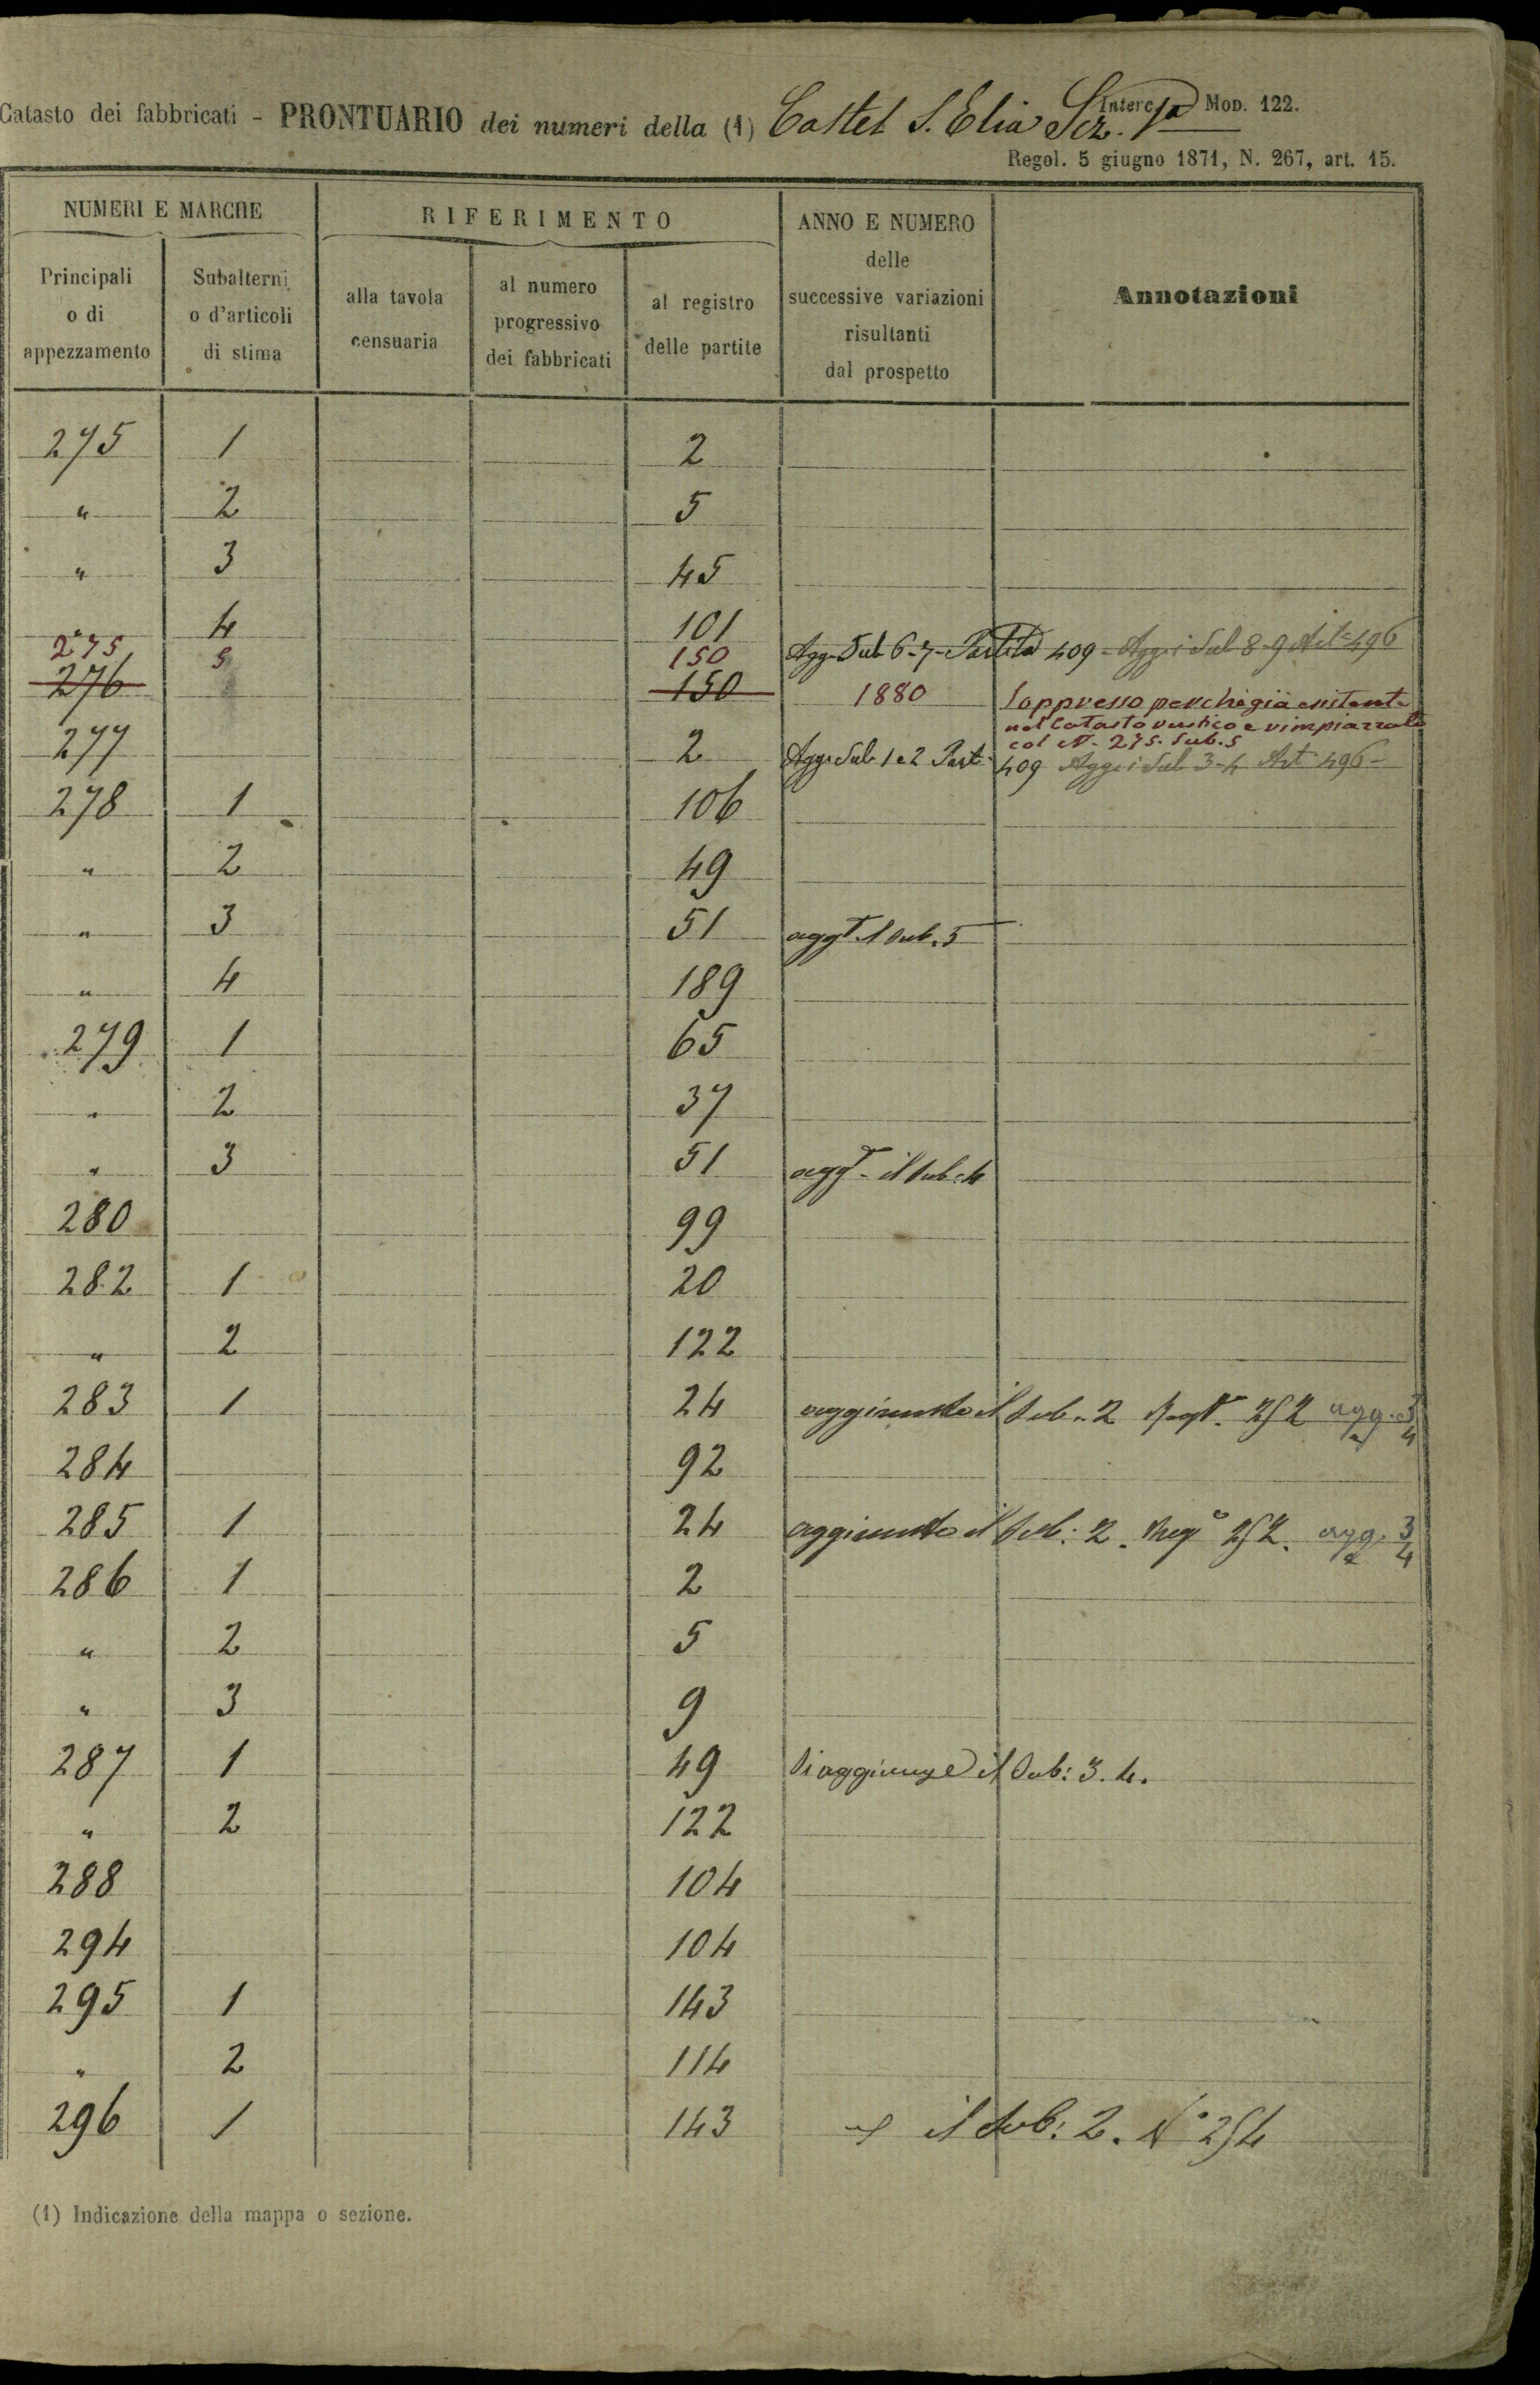 Catasto dei fabbricati - PRONTUARIO dei numeri della (1) Castel S. Elia Sez. 1a Interc Mod. 122.
Regol. 5 giugno 1871, N. 267, art. 15.
NUMERI E MARCHE RIFERIMENTO ANNO E NUMERO delle successive variazioni risultanti dal prospetto Annotazioni
Principali o di appezzamento Subalterni o d'articoli di stima alla tavola censuaria al numero progressivo dei fabbricati al registro delle partite
275 1 2
" 2 5
" 3 45
" 4 101
275 5 150 Agg. Sub 6-7- Partita 409 - Agg. i Sub 8-9 Art 496
276 150 1880 Soppresso perchè già esistente
nel Catasto rustico e rimpiazzato
col N. 275. Sub. 5
277 2 Agg. Sub 1 e 2 Part. 409 Agg. i Sub 3-4 Art 496-
278 1 106
" 2 49
" 3 51 aggt. il Sub. 5
" 4 189
279 1 65
" 2 37
" 3 51 aggt - il Sub: 4
280 99
282 1 20
" 2 122
283 1 24 aggiunto il Sub. 2 252 agg. 3 4
284 92
285 1 24 aggiunto il Sub: 2. Regº 252. agg. 3 4
286 1 2
" 2 5
" 3 9
287 1 49 Si aggiunge il Sub: 3. 4.
" 2 122
288 104
294 104
295 1 143
" 2 114
296 1 143 il Sub: 2. Nº 254
(1) Indicazione della mappa o sezione.